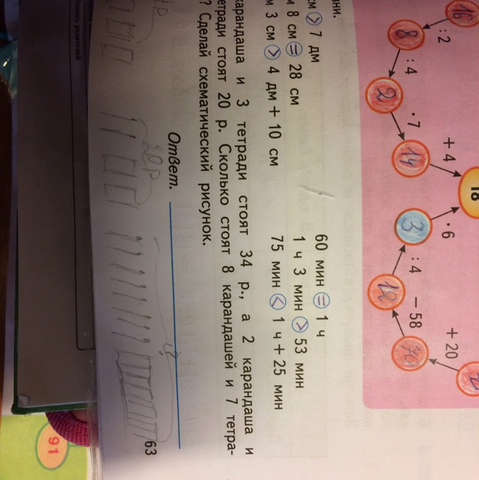 16 :2 8 :4 2 ·7 14 +4 18
·6 3 :4 12 −58 70 +20
см > 7 дм 60 мин = 1 ч
м 8 см = 28 см 1 ч 3 мин > 53 мин
м 3 см > 4 дм + 10 см 75 мин < 1 ч + 25 мин
карандаша и 3 тетради стоят 34 р., а 2 карандаша и
тетради стоят 20 р. Сколько стоят 8 карандашей и 7 тетра-
? Сделай схематический рисунок.
Ответ.
20р
63
91